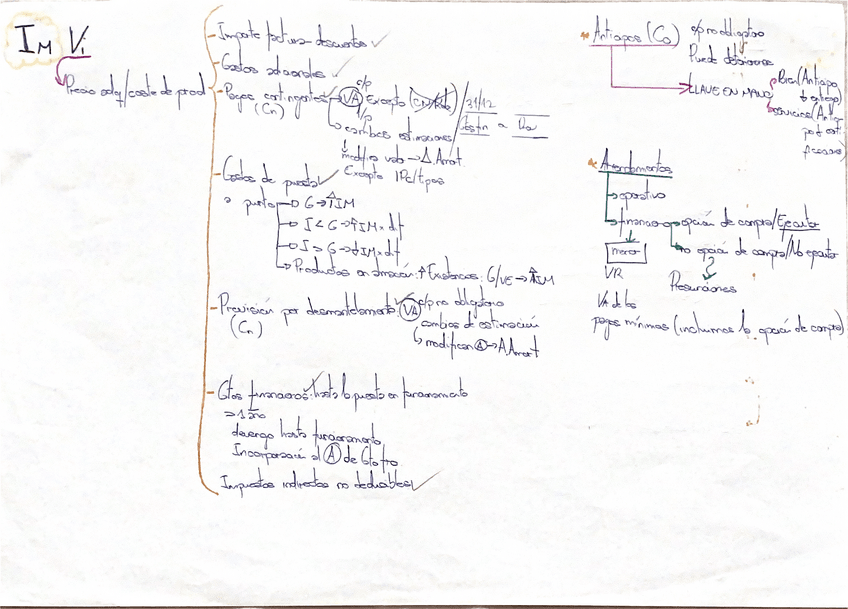 IM Vi
Precio adq/coste de prod
- Importe factura-descuentos ✓
- Gastos adicionales ✓
- Pagos contingentes → VA c/p Excepto
l/p
(Cn)
31/12
cambios estimaciones
modifica valor → Δ Amort.
Excepto IPC/tipos
- Gastos de puesta ✓
a punto → G → ↑IM
→ I < G → ↑IM x dif
→ I > G → ↓IM x dif
→ Productos en almacén: ↑ Existencias: G/VE → ↑IM
- Previsión por desmantelamiento ✓ VA c/p no obligatorio
(Cn)
cambios de estimación
↳ modifican A → Δ Amort
- Gtos financieros: hasta la puesta en funcionamiento
> 1 año
devengo hasta funcionamiento
Incorporación al A de Gto fro.
Impuestos indirectos no deducibles ✓
* Anticipos (Co) c/p no obligatorio
Puede
LLAVE EN MANO
Bien (Anticipo
Servicios (Anti-
* Arrendamientos
→ operativo
→ financiero → opción de compra/Ejecutar
→ no opción de compra/No ejecutar
menor
Presunciones
VR
VA de los
pagos mínimos (incluimos la opción de compra)